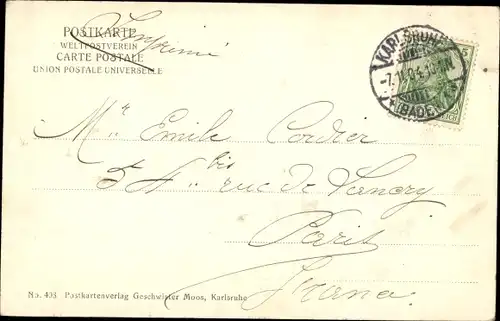 POSTKARTE
WELTPOSTVEREIN
CARTE POSTALE
UNION POSTALE UNIVERSELLE
Imprimé
KARLSRUHE
(BADEN)
Mr Emile Cordier
bis
rue de Lancry
Paris
France
No. 403 Postkartenverlag Geschwister Moos, Karlsruhe